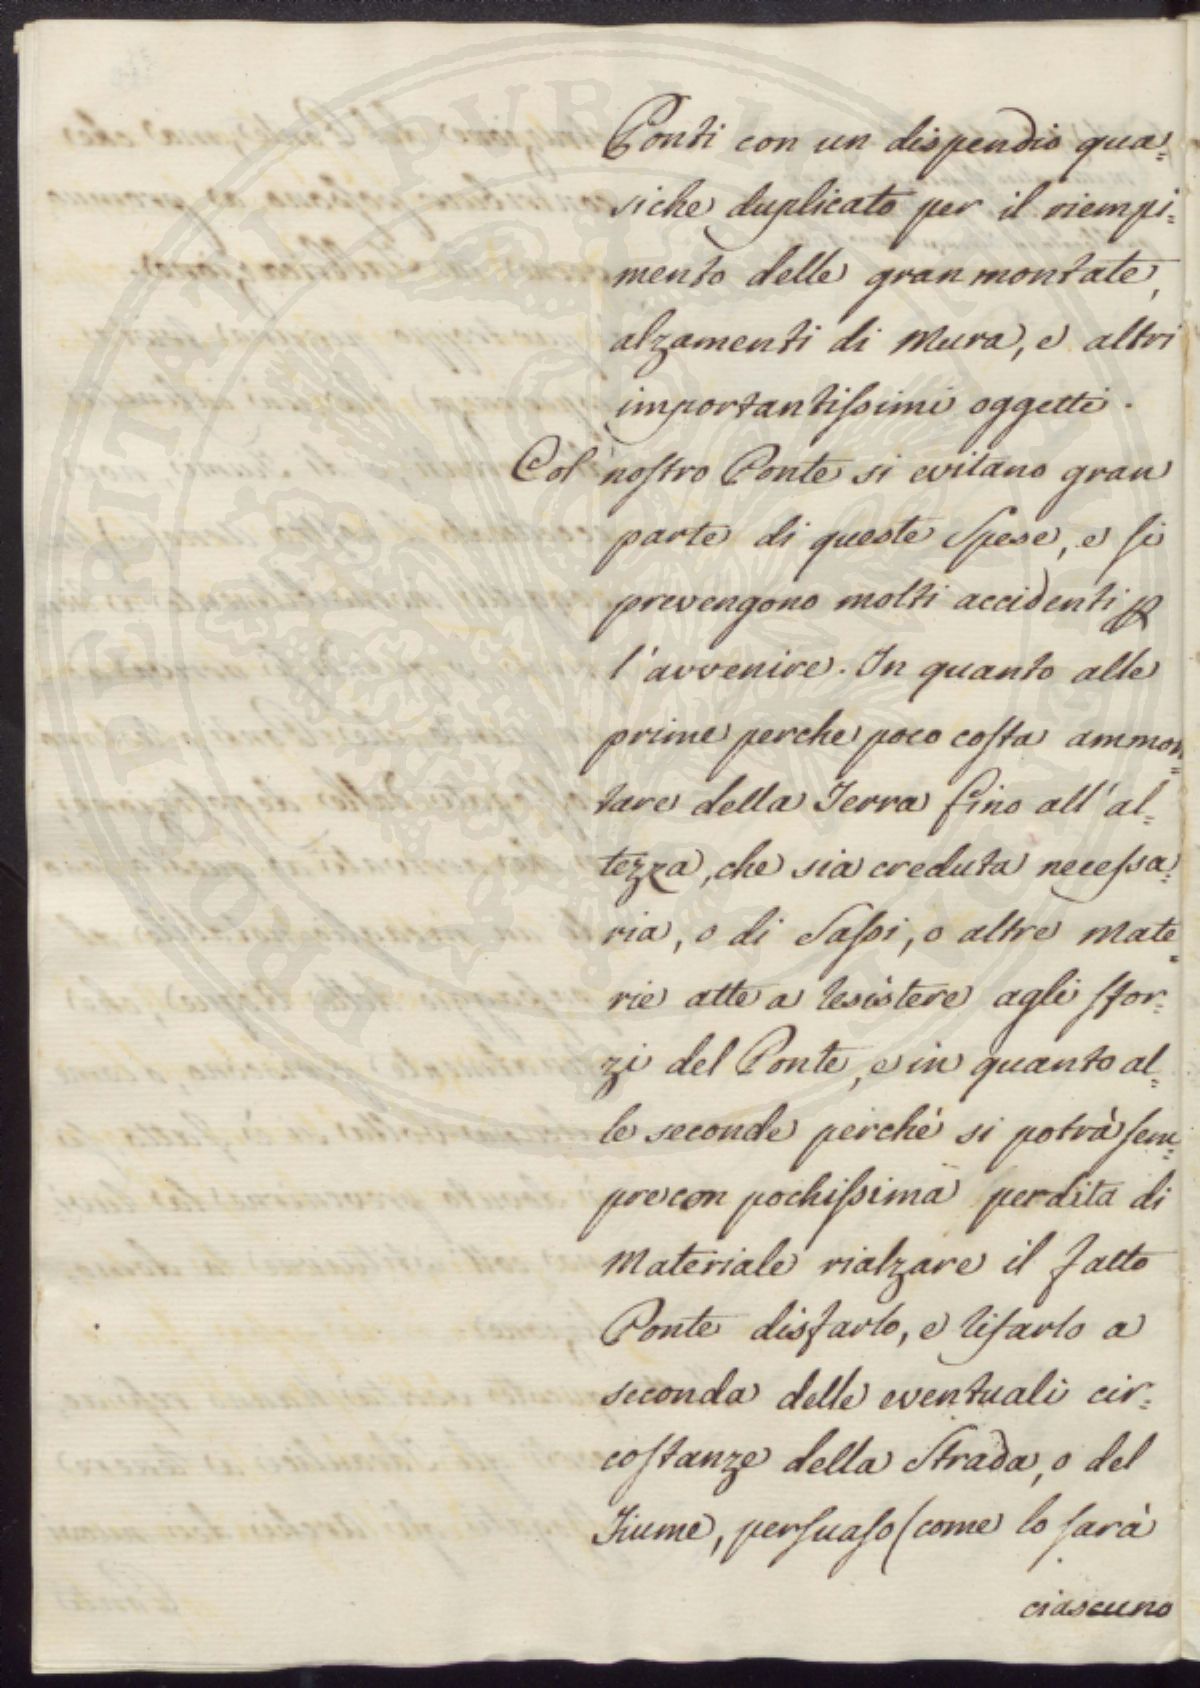 Ponti con un dispendio qua=
siche duplicato per il riempi=
mento delle gran montate,
alzamenti di Mura, e altri
importantissimi oggetti.
Col nostro Ponte si evitano gran
parte di queste Spese, e si
prevengono molti accidenti p
l'avvenire. In quanto alle
prime perche poco costa ammon=
tare della Terra fino all'al=
tezza, che sia creduta necessa=
ria, o di Sassi, o altre Mate=
rie atte a resistere agli sfor=
zi del Ponte, e in quanto al=
le seconde perchè si potrà sem=
pre con pochissima perdita di
Materiale rialzare il fatto
Ponte disfarlo, e rifarlo a
seconda delle eventuali cir=
costanze della Strada, o del
Fiume, persuaso (come lo sarà
ciascuno
PROPERITATI PVBLICAE